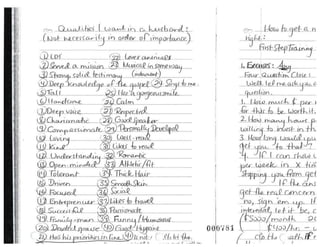 Qualities I want in a husband:
(Not necessarily in order of importance)
① LDS
② Served a mission
③ Strong, solid testimony
④ Deep knowledge of the gospel
⑤ Tall
⑥ Handsome
⑦ Deep voice
⑧ Charismatic
⑨ Compassionate
⑩ Loving
⑪ Kind
⑫ Understanding
⑬ Open-minded
⑭ Tolerant
⑮ Driven
⑯ Focused
⑰ Entrepreneur
⑱ Successful
⑲ Family-man
㉑ Has his priorities in line
㉒ Loves animals
㉓ Musical in some way
(instrument)
㉔ Sings to me
㉕ Has a gorgeous smile
㉖ Calm
㉗ Respected
㉘ Good Speaker
㉙ Personally Developed
㉚ Well-read
㉛ Likes to read
㉜ Romantic
㉝ Athletic/fit
㉞ Thick Hair
㉟ Smooth Skin
㊱ Social
㊲ Likes to travel
㊳ Passionate
㊴ Funny/Humorous
㊵ Good Hygiene
How to get a
right:
First Step Training
1. Exercises:
Four Question Close:
Well let me ask you
question.
1. How much $ per
for this to be worth it.
2. How many hours p
willing to invest in th
3. How long would you
get you to that?
4. If I can show
per week in X
stopping you from get
If the can
get the real concern
no, sign em up. If
interested, let it be,
($5000/month
$400/hr.
000751